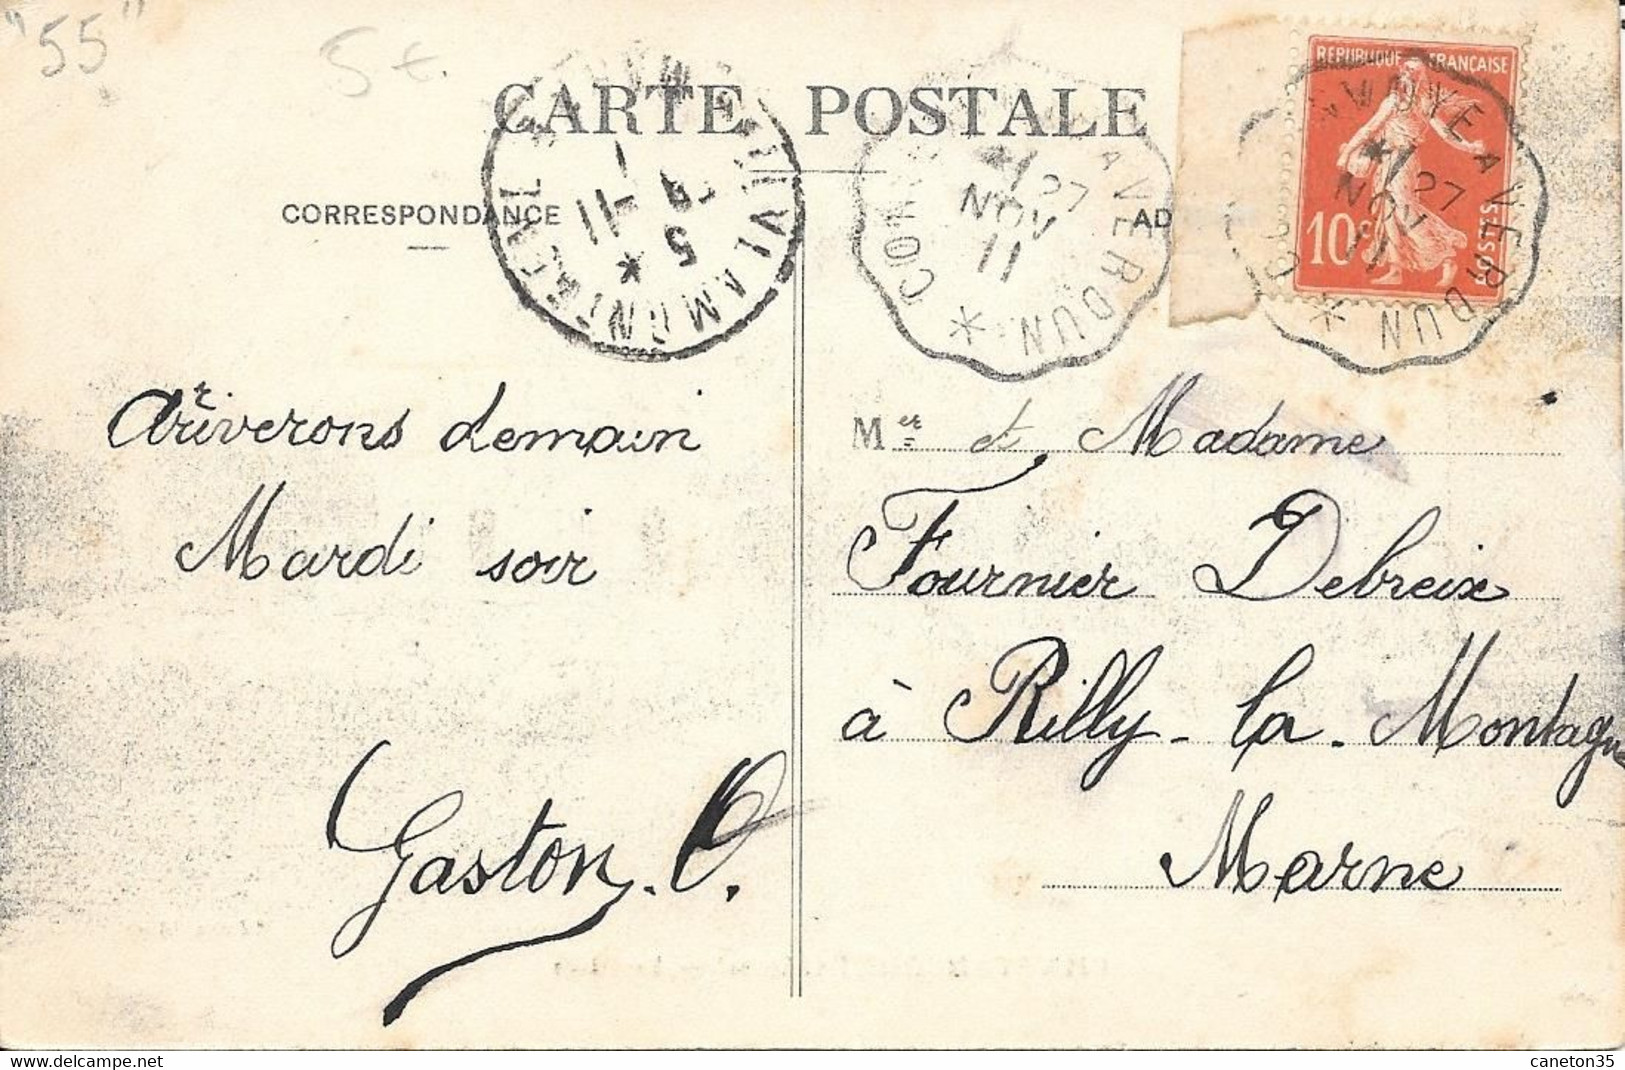 "55"
5 €.
CARTE POSTALE
CORRESPONDANCE
AD
REPUBLIQUE FRANÇAISE
10c
POSTES
NOV
11
A VERDUN
NOV
11
A VERDUN
5
11
Arriverons demain
Mardi soir
Gaston. O.
Mr et Madame
Fournier Debreix
à Rilly-la-Montagne
Marne
delcampe.net
caneton35